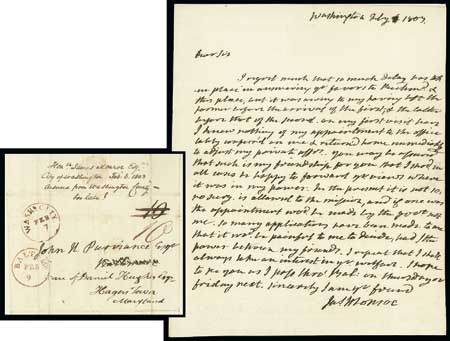 Washington Feby 1803.
Dear Sir
I regret much that so much delay has taken
place in answering yr favors to Richmd. &
this place, but it was owing to my having left the
former before the arrival of the first, & the latter
before that of the second. on my first visit here
I knew nothing of my appointment to the office
lately conferred on me & returned home immediately
to adjust my private affrs. you may be assured
that such is my friendship for you that I shod in
all cases be happy to forward yr views where
it was in my power. In the present it is not so,
no secy. is allowed to the mission, and if one was
the appointment wod be made by the govt not
me. so many applications have been made to me
that it wod be painful to me to decide, had I the
power between my friends. I repeat that I shall
always take an interest in yr welfare. I hope
to see you as I pass thro' Balt. on thursday or
friday next. sincerely I am yr friend
Jas. Monroe
Honble James Monroe Esq.
City of Washington Feb. 8. 1803
Answer from Washington
too late!
WASH. CITY
FEB
7
10
John H. Purviance Esqr
BALT
FEB
9
care of Daniel Hughes Esq
Hagers Town
Maryland